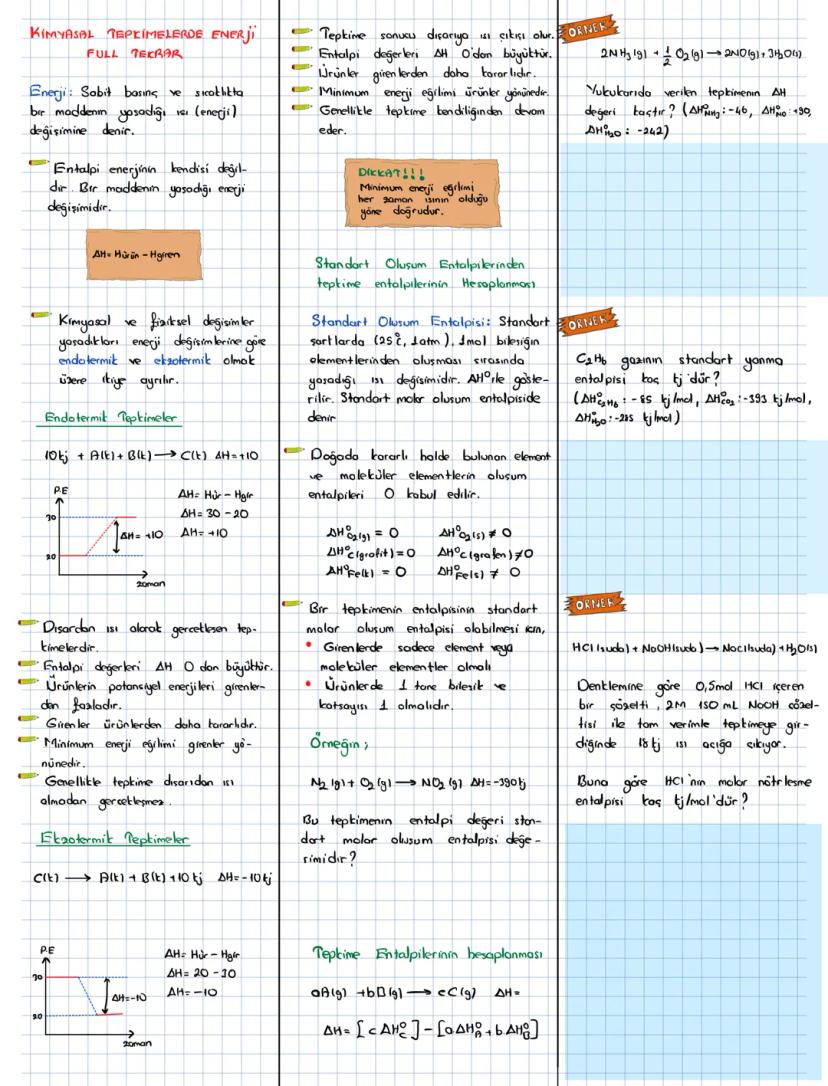 KİMYASAL TEPKİMELERDE ENERJİ
FULL TEKRAR
Enerji: Sabit basınç ve sıcaklıkta
bir maddenin yaşadığı ısı (enerji)
değişimine denir.
Entalpi enerjinin kendisi değil-
dir. Bir maddenin yaşadığı enerji
değişimidir.
ΔH= Hürün - Hgiren
Kimyasal ve fiziksel değişimler
yaşadıkları enerji değişimlerine göre
endotermik ve ekzotermik olmak
üzere ikiye ayrılır.
Endotermik Tepkimeler
10kj + A(k) + B(k) → C(k) ΔH=+10
P.E
30
20
ΔH= +10
zaman
ΔH= Hür - Hgir
ΔH= 30 - 20
ΔH= +10
Dışardan ısı alarak gerçekleşen tep-
kimelerdir.
Entalpi değerleri ΔH 0 dan büyüktür.
Ürünlerin potansiyel enerjileri girenler-
den fazladır.
Girenler ürünlerden daha kararlıdır.
Minimum enerji eğilimi girenler yö-
nünedir.
Genellikle tepkime dışarıdan ısı
almadan gerçekleşmez.
Ekzotermik Tepkimeler
C(k) → A(k) + B(k) +10 kj ΔH=-10kj
P.E
30
20
ΔH=-10
zaman
ΔH= Hür - Hgir
ΔH= 20 - 30
ΔH= -10
Tepkime sonucu dışarıya ısı çıkışı olur.
Entalpi değerleri ΔH 0'dan büyüktür.
Ürünler girenlerden daha kararlıdır.
Minimum enerji eğilimi ürünler yönünedir.
Genellikle tepkime kendiliğinden devam
eder.
DİKKAT!!!
Minimum enerji eğilimi
her zaman ısının olduğu
yöne doğrudur.
Standart Oluşum Entalpilerinden
tepkime entalpilerinin Hesaplanması
Standart Oluşum Entalpisi: Standart
şartlarda (25°C, 1atm), 1mol bileşiğin
elementlerinden oluşması sırasında
yaşadığı ısı değişimidir. ΔH° ile göste-
rilir. Standart molar oluşum entalpiside
denir
Doğada kararlı halde bulunan element
ve moleküler elementlerin oluşum
entalpileri 0 kabul edilir.
ΔH°O₂(g) = 0 ΔH°O₂(s) ≠ 0
ΔH°C(grafit) = 0 ΔH°C(grafen) ≠ 0
ΔH°Fe(k) = 0 ΔH°Fe(s) ≠ 0
Bir tepkimenin entalpisinin standart
molar oluşum entalpisi olabilmesi için,
• Girenlerde sadece element veya
moleküler elementler olmalı
• Ürünlerde 1 tane bileşik ve
katsayısı 1 olmalıdır.
Örneğin;
N₂(g) + O₂(g) → NO₂(g) ΔH=-390kj
Bu tepkimenin entalpi değeri stan-
dart molar oluşum entalpisi değe-
rimidir?
Tepkime Entalpilerinin hesaplanması
aA(g) +bB(g) → cC(g) ΔH=
ΔH= [c ΔH°C] - [a.ΔH°A + b.ΔH°B]
ÖRNEK
2NH₃(g) + 1/2 O₂(g) → 2NO(g) + 3H₂O(s)
Yukukarıda verilen tepkimenin ΔH
değeri kaçtır? (ΔH°NH₃: -46, ΔH°NO: +90,
ΔH°H₂O: -242)
ÖRNEK
C₂H₆ gazının standart yanma
entalpisi kaç kj'dür?
(ΔH°C₂H₆: -85 kj/mol, ΔH°CO₂: -393 kj/mol,
ΔH°H₂O: -285 kj/mol)
ÖRNEK
HCl(suda) + NaOH(suda) → NaCl(suda) + H₂O(s)
Denklemine göre 0,5mol HCl içeren
bir çözelti, 2M 150 mL NaOH çözel-
tisi ile tam verimle tepkimeye gir-
diğinde 18 kj ısı açığa çıkıyor.
Buna göre HCl'nin molar nötrleşme
entalpisi kaç kj/mol'dür?